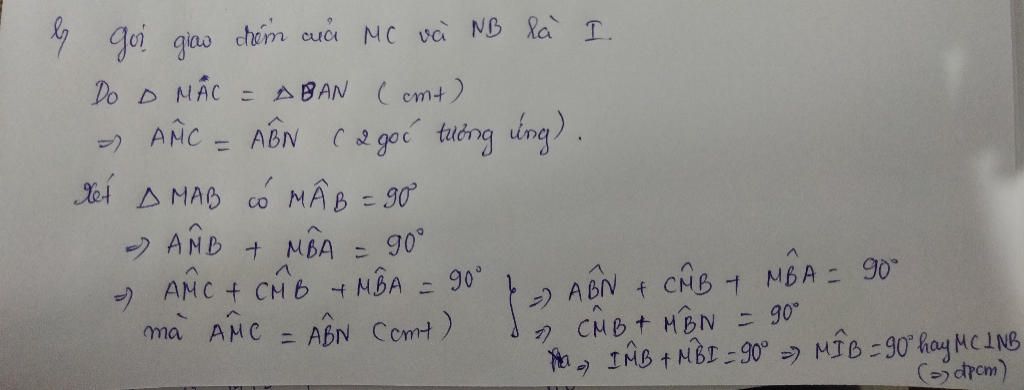 b, Gọi giao điểm của MC và NB là I.
Do Δ MAC = Δ BAN ( cmt )
=> AM̂C = AB̂N ( 2 góc tương ứng ).
Xét Δ MAB có MÂB = 90°
=> AM̂B + MB̂A = 90°
=> AM̂C + CM̂B + MB̂A = 90°
mà AM̂C = AB̂N (cmt)
} => AB̂N + CM̂B + MB̂A = 90°
=> CM̂B + MB̂N = 90°
=> IM̂B + MB̂I = 90° => MÎB = 90° hay MC ⊥ NB
(=> đpcm)